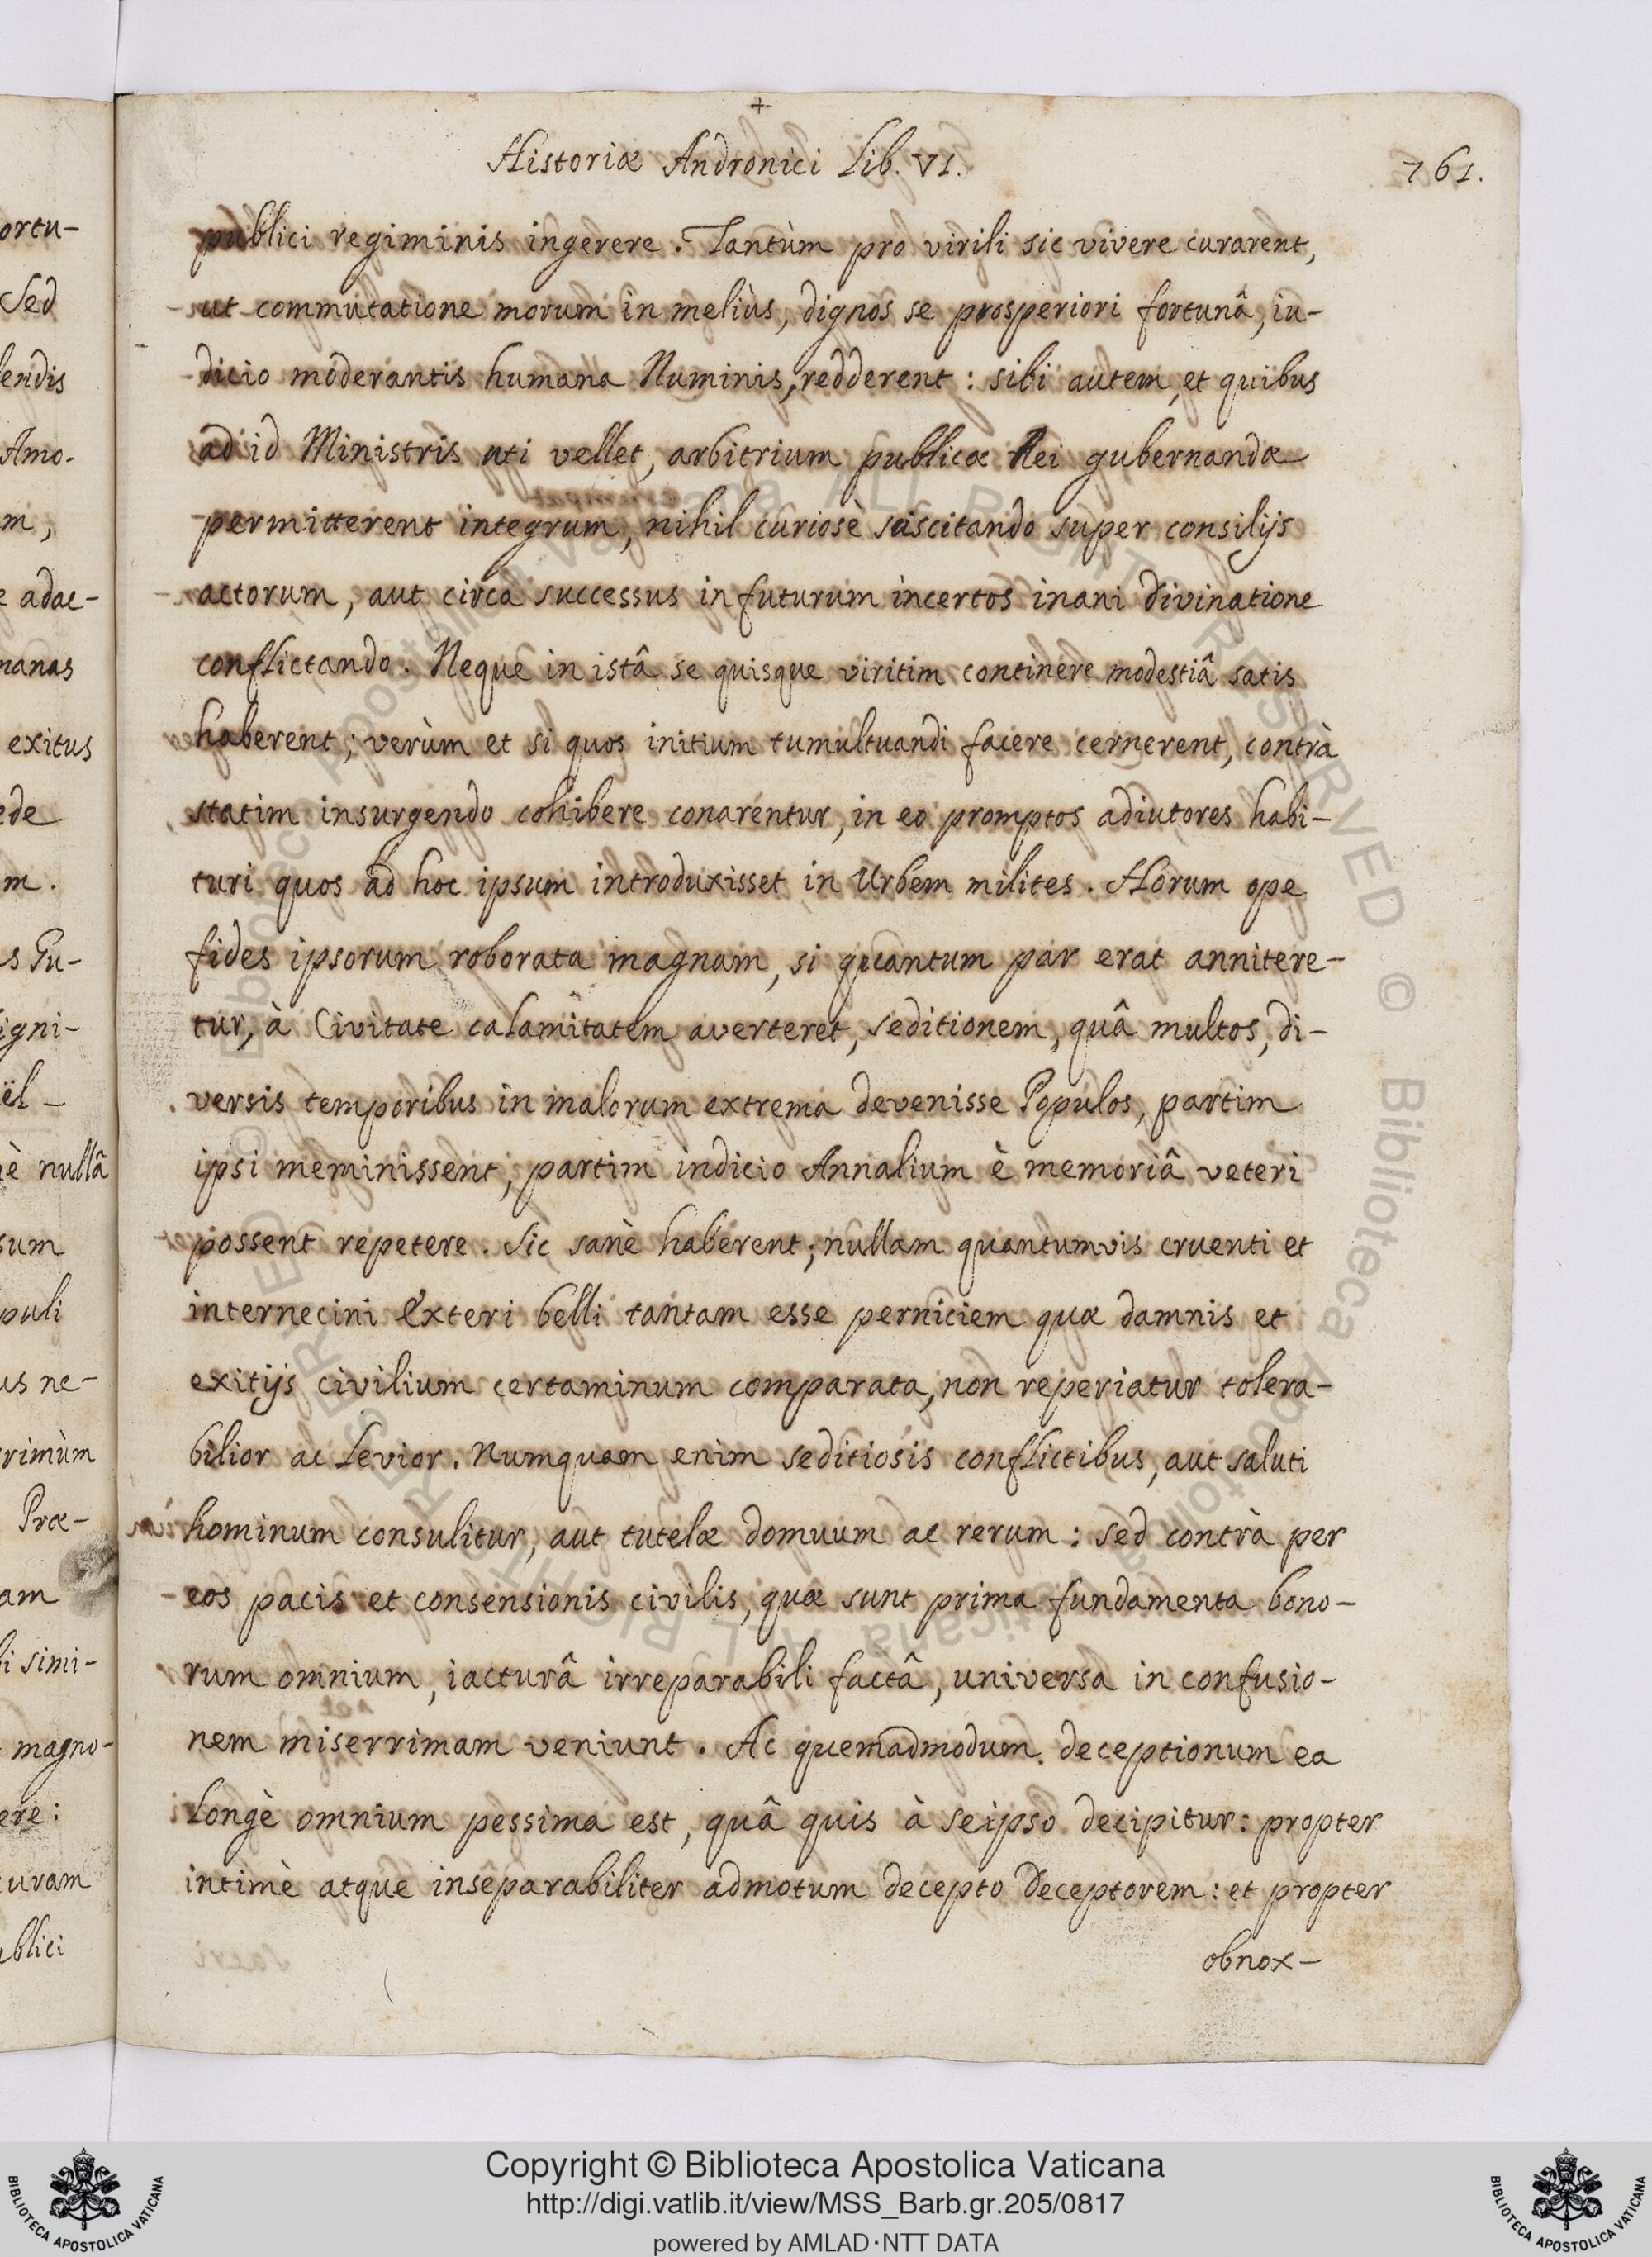 +
Historiæ Andronici Lib. VI.
761.
publici regiminis ingerere. Tantùm pro virili sic vivere curarent,
ut commutatione morum in meliùs, dignos se prosperiori fortunâ, iu-
dicio moderantis humana Numinis, redderent: sibi autem, et quibus
ad id Ministris uti vellet, arbitrium publicæ Rei gubernandæ
permitterent integrum, nihil curiosè suscitando super consilijs
actorum, aut circa successus in futurum incertos inani divinatione
conflictando. Neque in istâ se quisque viritim continere modestiâ satis
haberent; verùm et si quos initium tumultuandi facere cernerent, contrà
statim insurgendo cohibere conarentur, in eo promptos adiutores habi-
turi quos ad hoc ipsum introduxisset in Urbem milites. Horum ope
fides ipsorum roborata magnam, si quantum par erat annitere-
tur, à Civitate calamitatem averteret, seditionem, quâ multos, di-
versis temporibus in malorum extrema devenisse Populos, partim
ipsi meminissent, partim indicio Annalium è memoriâ veteri
possent repetere. Sic sanè haberent; nullam quantumvis cruenti et
internecini exteri belli tantam esse perniciem quæ damnis et
exitijs civilium certaminum comparata, non reperiatur tolera-
bilior ac levior. Numquam enim seditiosis conflictibus, aut saluti
hominum consulitur, aut tutelæ domuum ac rerum: sed contrà per
eos pacis et consensionis civilis, quæ sunt prima fundamenta bono-
rum omnium, iacturâ irreparabili factâ, universa in confusio-
nem miserrimam veniunt. Ac quemadmodum deceptionum ea
longè omnium pessima est, quâ quis à seipso decipitur: propter
intimè atque inseparabiliter admotum decepto Deceptorem: et propter
obnox-
ortu-
Sed
lendis
Amo-
m,
e adac-
manas
exitus
ede
m.
s Gu-
igni-
ël-
è nullâ
sum
puli
us ne-
rimùm
Præ-
am
bi simi-
magno-
ere:
uram
blici
Copyright © Biblioteca Apostolica Vaticana
http://digi.vatlib.it/view/MSS_Barb.gr.205/0817
powered by AMLAD·NTT DATA
BIBLIOTECA APOSTOLICA VATICANA
BIBLIOTECA APOSTOLICA VATICANA